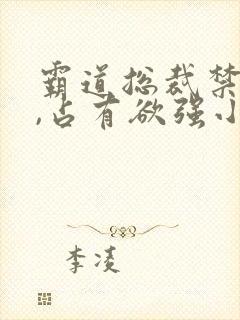 霸道总裁禁
,占有欲强小
李凌